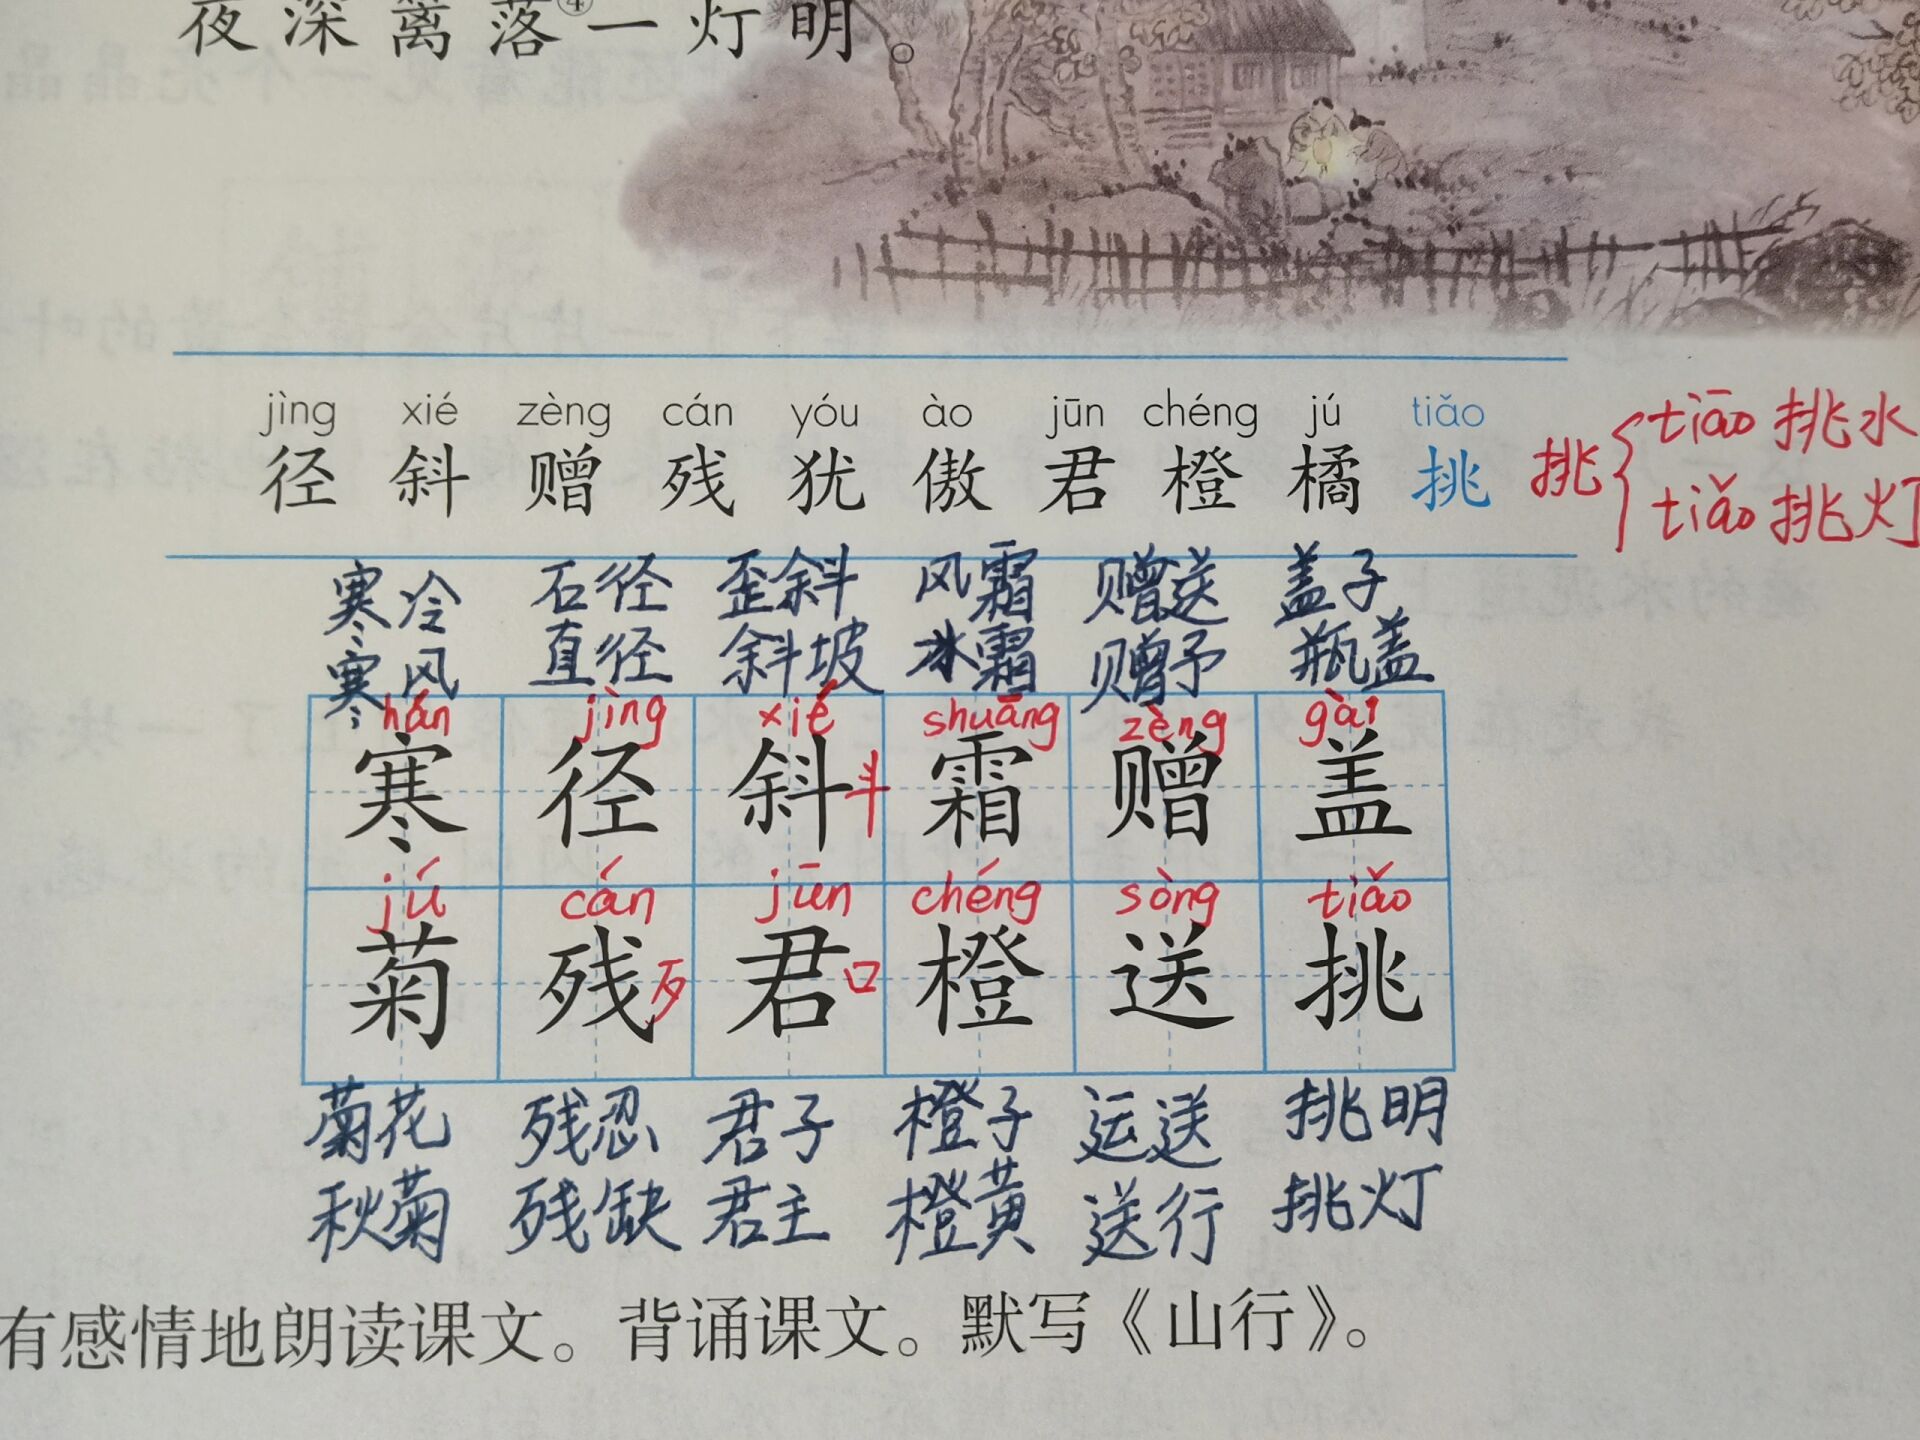 夜深篱落④一灯明。
jìng xié zèng cán yóu ào jūn chéng jú tiǎo
径 斜 赠 残 犹 傲 君 橙 橘 挑
挑 { tiāo 挑水
tiǎo 挑灯
寒冷 石径 歪斜 风霜 赠送 盖子
寒风 直径 斜坡 冰霜 赠予 瓶盖
hán jìng xié shuāng zèng gài
寒 径 斜 斗 霜 赠 盖
jú cán jūn chéng sòng tiǎo
菊 残 歹 君 口 橙 送 挑
菊花 残忍 君子 橙子 运送 挑明
秋菊 残缺 君主 橙黄 送行 挑灯
有感情地朗读课文。背诵课文。默写《山行》。